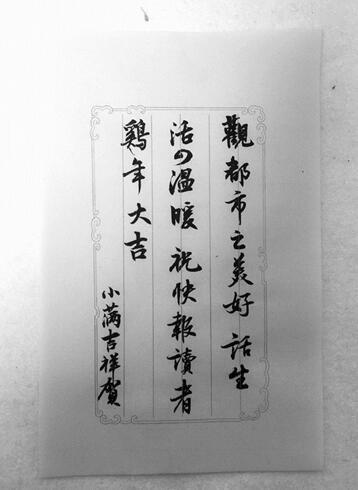 觀都市之美好 話生
活の溫暖 祝快報讀者
鷄年大吉
小满吉祥賀